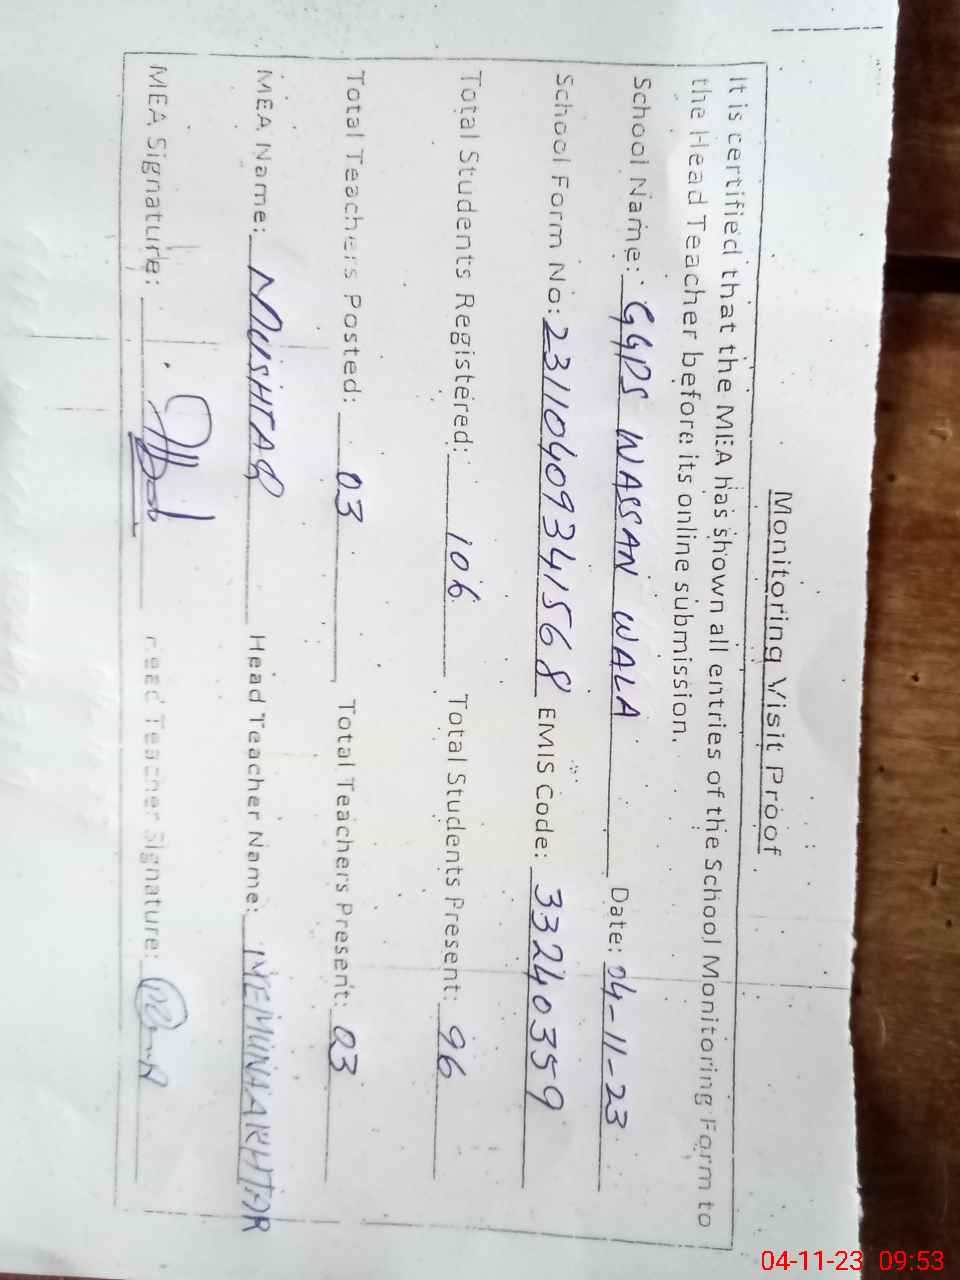 Monitoring Visit Proof
It is certified that the MEA has shown all entries of the School Monitoring Form to
the Head Teacher before its online submission.
School Name: GGPS WASSAN WALA Date: 04-11-23
School Form No: 23110409341568 EMIS Code: 33240359
Total Students Registered: 106 Total Students Present: 96
Total Teachers Posted: 03 Total Teachers Present: 03
MEA Name: MUSHTAQ Head Teacher Name: AKHTAR
MEA Signature: Head Teacher Signature:
04-11-23 09:53